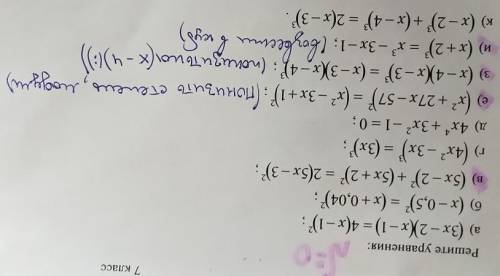 7 класс
N=0
Решите уравнения:
а) (3x − 2)(x − 1) = 4(x − 1)²;
б) (x − 0,5)² = (x + 0,04)²;
в) (5x − 2)² + (5x + 2)² = 2(5x − 3)²;
г) (4x² − 3x)³ = (3x)³;
д) 4x⁴ + 3x² − 1 = 0;
е) (x² + 27x − 57)² = (x² − 3x + 1)²; (понизить степень, модули)
з) (x − 4)(x − 3)³ = (x − 3)(x − 4)³; (понизить на (x − 4)(;))
и) (x + 2)³ = x³ − 3x − 1; (возвести в куб)
к) (x − 2)³ + (x − 4)³ = 2(x − 3)³.